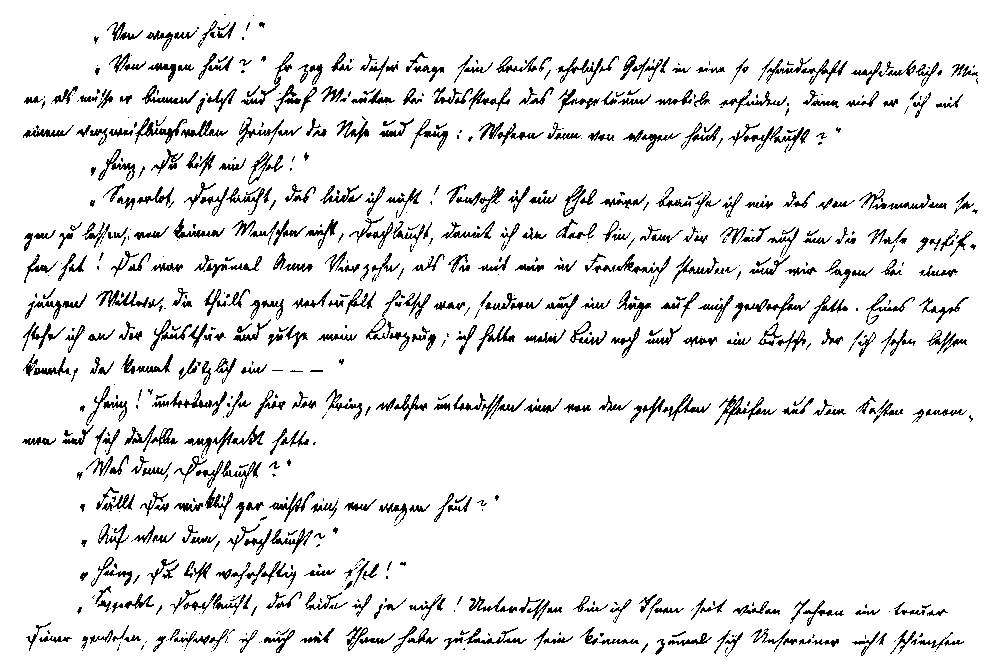 „Von wegen heut!“
„Von wegen heut?“ Er zog bei dieser Frage sein breites, ehrliches Gesicht in eine so schauderhaft nachdenkliche Mie-
ne, als müsse er binnen jetzt und fünf Minuten bei Todesstrafe das Perpetuum mobile erfinden; dann rieb er sich mit
einem verzweiflungsvollen Grinsen die Nase und frug: „Wofern denn von wegen heut, Durchlaucht?“
„Heinz, Du bist ein Esel!“
„Sapperlot, Durchlaucht, das leide ich nicht! Sowohl ich ein Esel wäre, brauche ich mir das von Niemandem sa-
gen zu lassen, von keinem Menschen nicht, Durchlaucht, damit ich ein Kerl bin, dem der Wind auch um die Nase gepfif-
fen hat! Das war dazumal Anno Vierzehn, als Sie mit mir in Frankreich standen, und wir lagen bei einer
jungen Wittwe, die theils ganz verteufelt hübsch war, sondern auch ein Auge auf mich geworfen hatte. Eines Tages
stehe ich an der Hausthür und putze mein Lederzeug; ich hatte mein Bein noch und war ein Bursche, der sich sehen lassen
konnte; da kommt plötzlich ein – – – “
„Heinz!“ unterbrach ihn hier der Prinz, welcher unterdessen eine von den gestopften Pfeifen aus dem Kasten genom-
men und sich dieselbe angesteckt hatte.
„Was denn, Durchlaucht?“
„Fällt Dir wirklich gar nichts ein, von wegen heut?“
„Auf wen denn, Durchlaucht?“
„Heinz, Du bist wahrhaftig ein Esel!“
„Sapperlot, Durchlaucht, das leide ich ja nicht! Unterdessen bin ich Ihnen seit vielen Jahren ein treuer
Diener gewesen, gleichwohl ich auch mit Ihnen habe zufrieden sein können, zumal sich Unsereiner nicht schimpfen